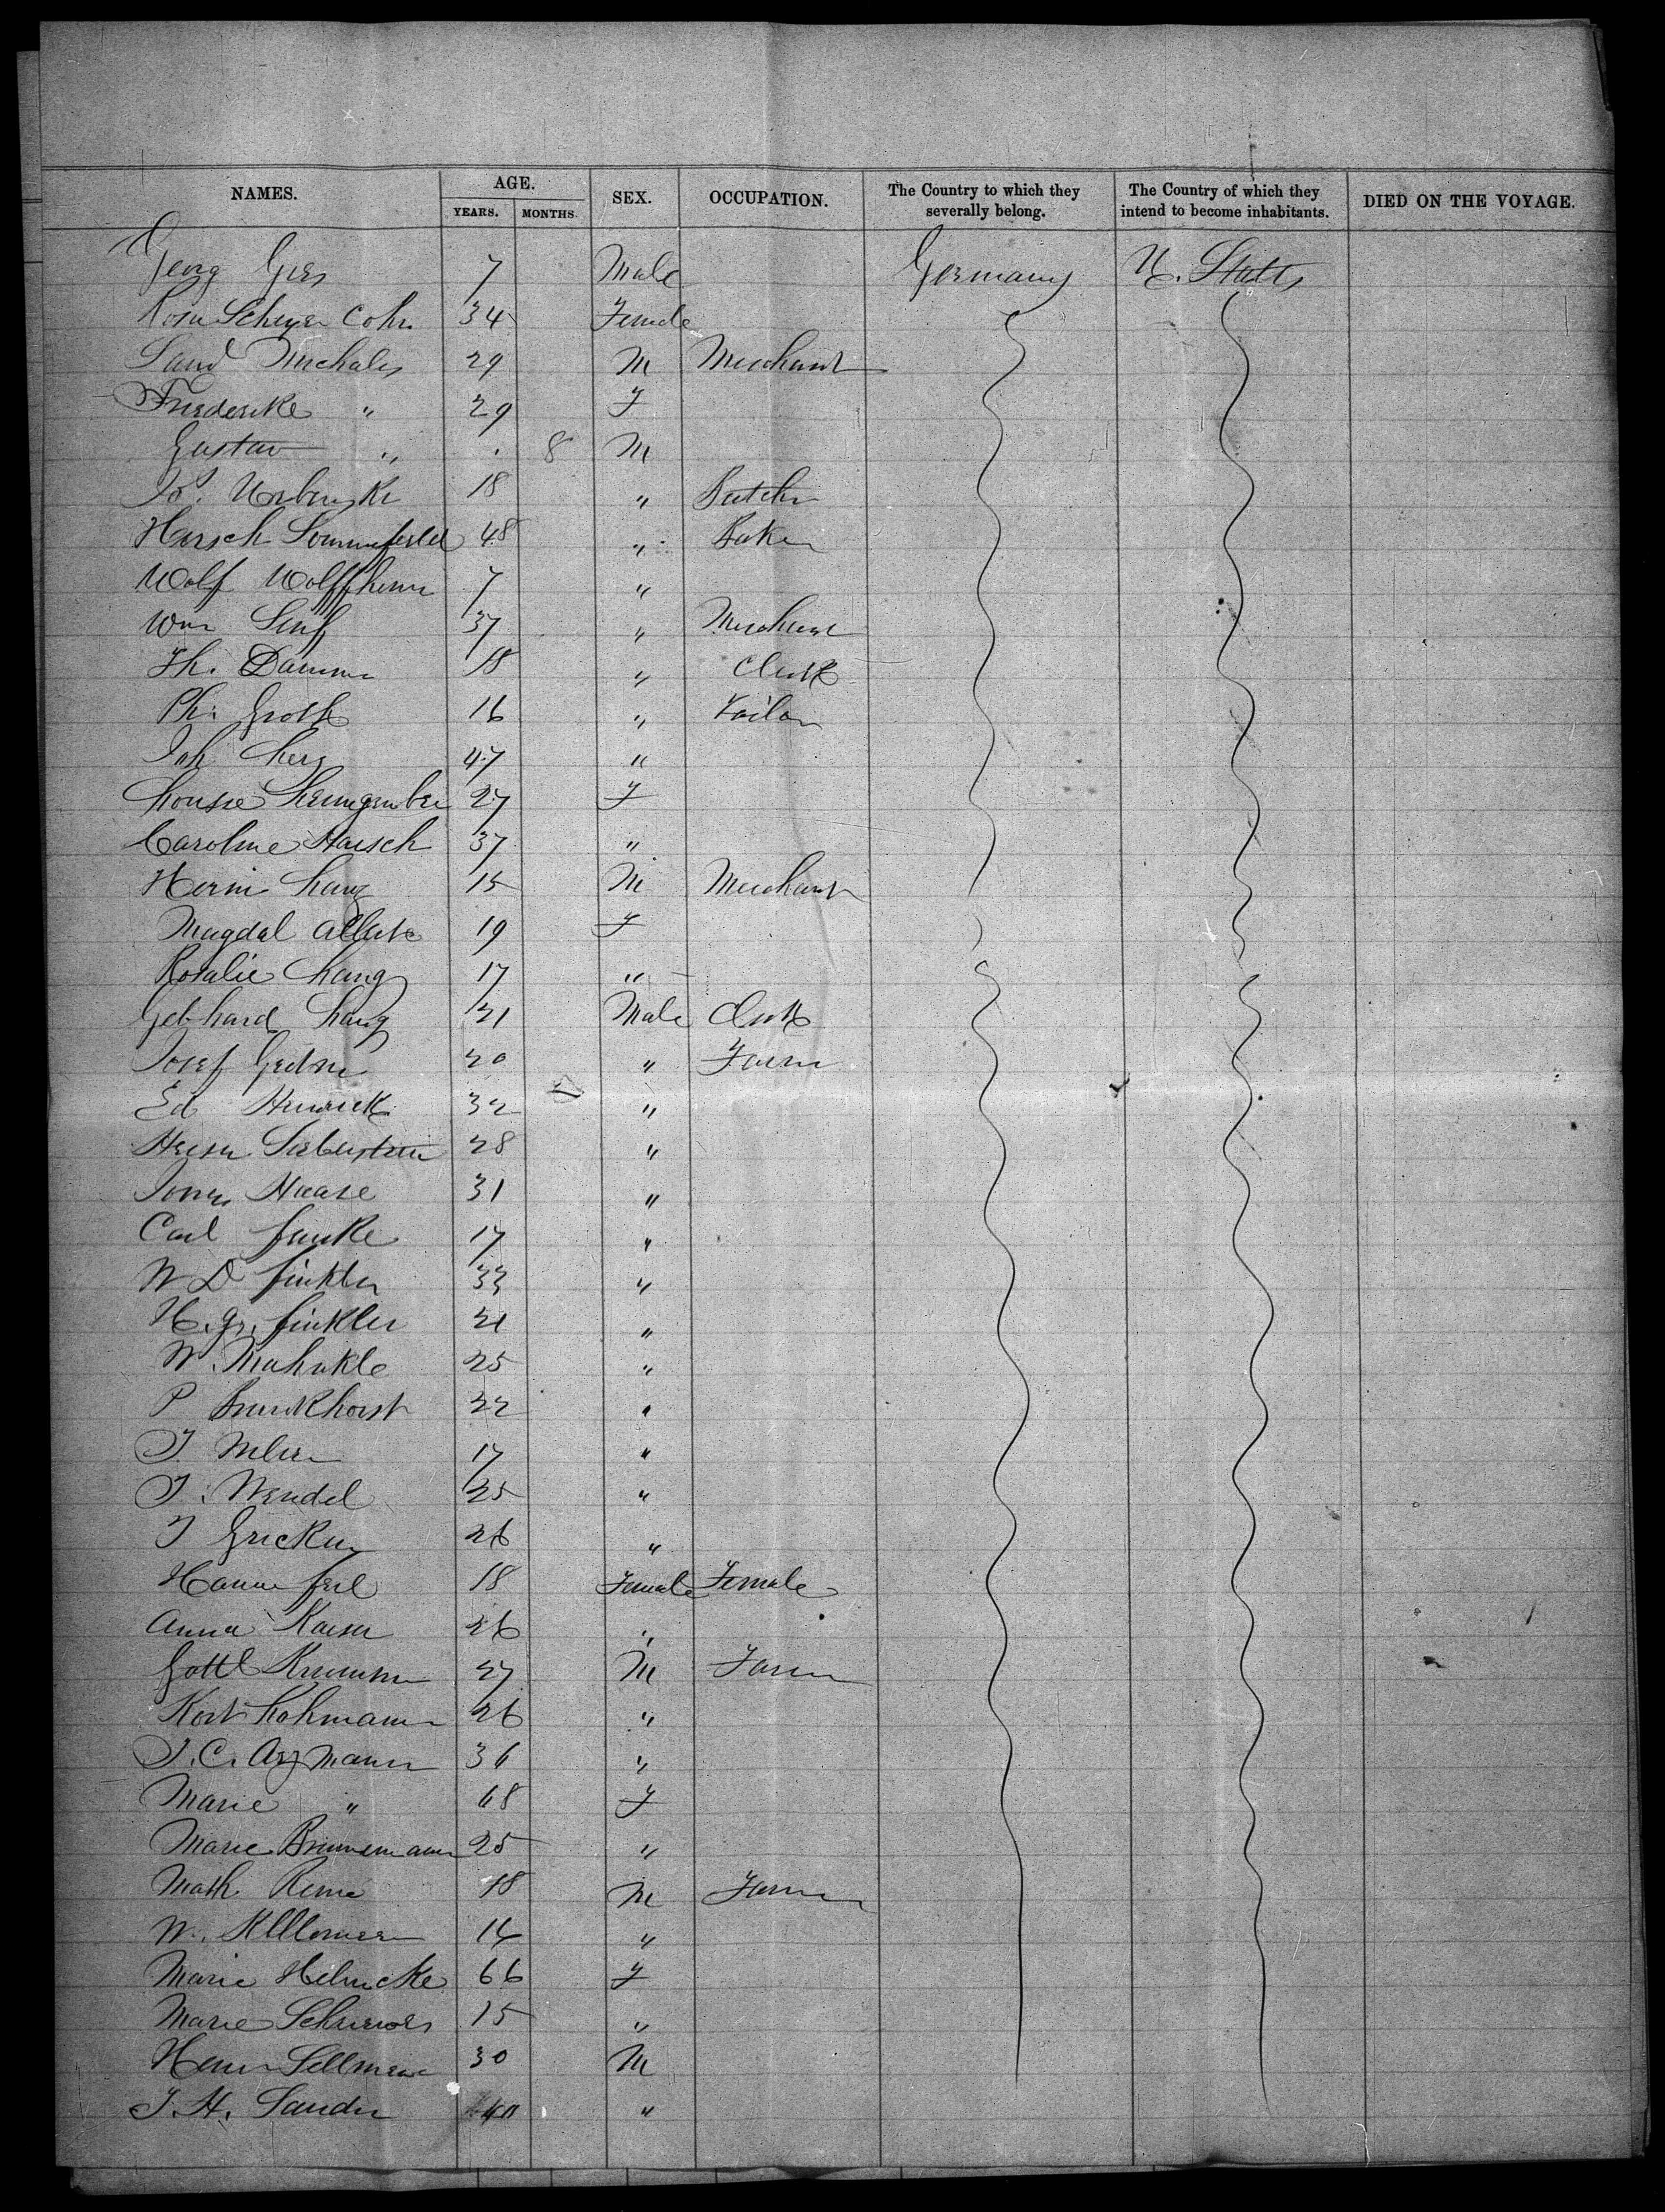 NAMES. AGE. SEX. OCCUPATION. The Country to which they severally belong. The Country of which they intend to become inhabitants. DIED ON THE VOYAGE.
YEARS. MONTHS.
Georg Gies 7 Male Germany U. States
Rosa Scheyer Cohn 34 Female
Michales 29 M Merchant
Frederike " 29 F
Gustav " . 8 M
18 " Butcher
Hersch Sommerfeld 48 " Baker
Wolf Wolffheim 7 "
Wm Senf 37 " Merchant
Th. Damm 18 " Clerk
Ph. Groth 16 " Tailor
Joh 47 "
Louise 27 F
Caroline Haesch 37 "
Herm Lang 15 M Merchant
Magdal 19 F
Rosalie Lang 17 "
Gebhard Lang 21 Male Clerk
Josef 20 " Farm
Ed 32 "
Siebenstein 28 "
Jonas Haase 31 "
Carl Janke 17 "
W D Finkler 33 "
H. Gr. Finkler 21 "
W. Mahnkle 25 "
P Brunkhorst 22 "
J. 17 "
J. Wendel 25 "
J Gricken 26 "
Hanna 18 Female Female
Anna Kaiser 26 "
Gottl Krumm 27 M Farm
Kort Lohmann 26 "
J. C. Arzmann 36 "
Marie " 68 F
Marie Brunsemann 25 "
Math. 18 M Farmer
W. 16 "
Marie Helmcke 66 F
Marie 15 "
Sellmeier 30 M
J. H. Sander 40 "